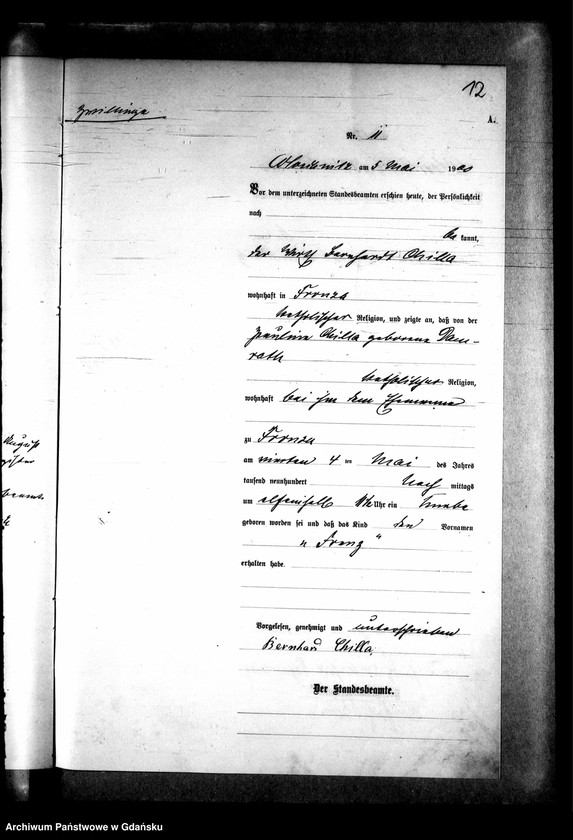 12
Zwillinge
A.
Nr. 11
am 5 Mai 1900
Vor dem unterzeichneten Standesbeamten erschien heute, der Persönlichkeit
nach
be kannt,
der Wirth Bernhardt Chilla
wohnhaft in Fronza
katholischer Religion, und zeigte an, daß von der
Pauline Chilla geborene Dam-
rath
katholischer Religion,
wohnhaft bei ihm dem Ehemanne
zu Fronza
am vierten 4 ten Mai des Jahres
tausend neunhundert Nach mittags
um Uhr ein Knabe
geboren worden sei und daß das Kind den Vornamen
"Franz"
erhalten habe.
Vorgelesen, genehmigt und unterschrieben
Bernhard Chilla.
Der Standesbeamte.
Archiwum Państwowe w Gdańsku